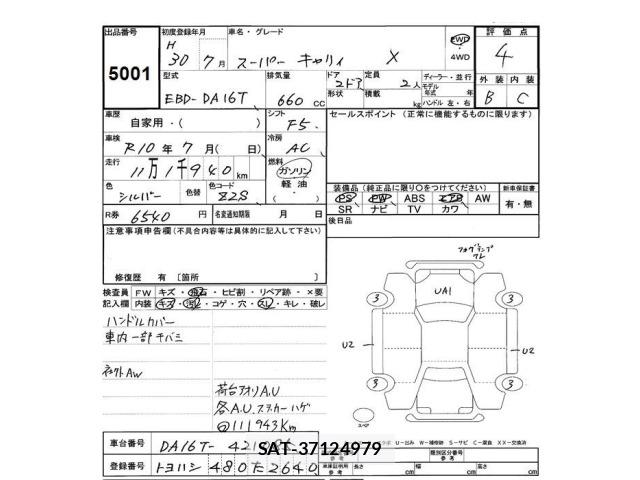 出品番号
5001
初度登録年月
H 30年7月
車名・グレード
スーパー キャリィ X
2WD
4WD
評価点
4
型式
EBD-DA16T
排気量
660 cc
ドア 2ドア
形状
定員 2人
積載 kg
ディーラー・並行
モデル年式 年
ハンドル 左・右
外装 内装
B C
車歴
自家用・( )
シフト
F5
セールスポイント (正常に機能するものに限ります)
車検
R10年7月( 日)
冷房
AC
走行
11万1千940km
燃料
ガソリン
軽油
( )
色
シルバー
色替
色コード
Z2S
装備品 (純正品に限り○をつけてください)
PS PW ABS エアB AW
SR ナビ TV カワ
新車保証書
有・無
R券 6540円
名変通知期限 月 日
後日品
注意事項申告欄 (不具合内容等は具体的に記入して下さい)
修復歴 有 〔箇所 〕
検査員記入欄
FW キズ・飛石・ヒビ割・リペア跡・×要
内装 キズ・汚れ・コゲ・穴・スレ・キレ・破レ
ハンドルカバー
車内一部チバミ
社外AW
荷台アオリA.U
各A.U.ステッカーハゲ
111943Km
フォグランプ
ワレ
UA1
3
3
U2
U2
3
3
スペア
U-凹み W-補修跡 S-サビ C-腐食 XX-交換済
車台番号
DA16T-
登録番号
480 2640
参考
長さ cm
幅 cm
高さ cm
類別区分番号
参考
SAT-37124979